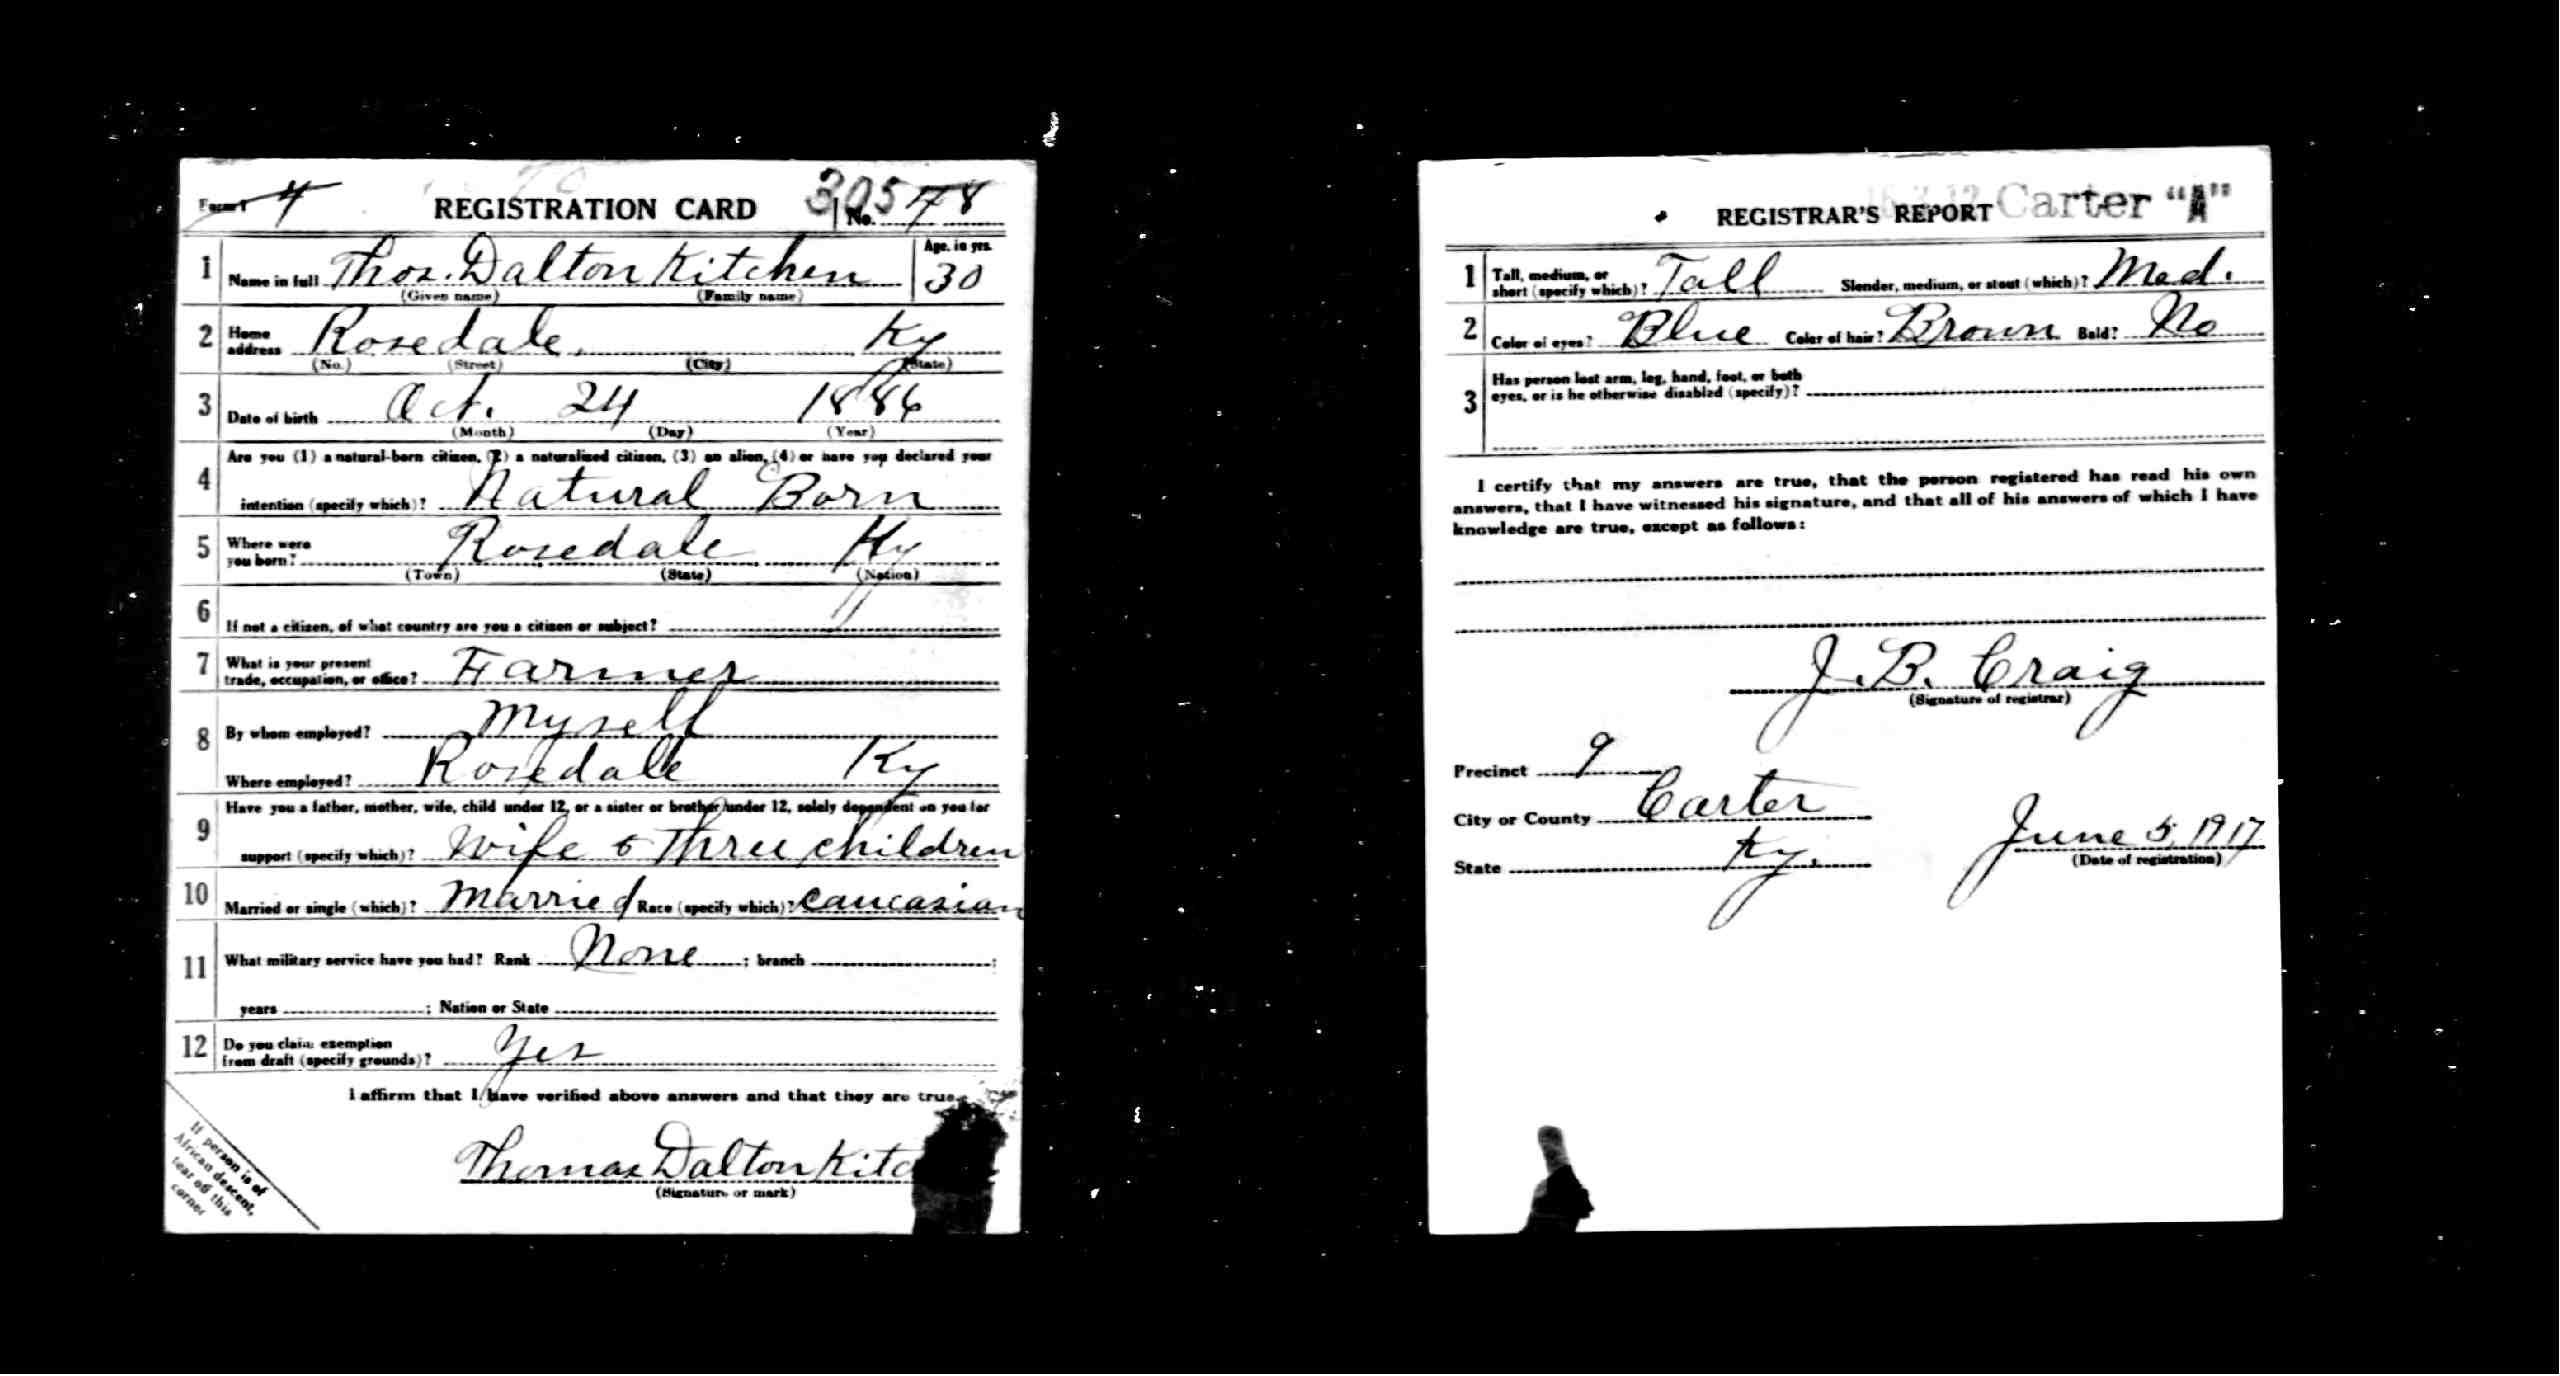 Form 1 4 REGISTRATION CARD 305 No. 78
1 Name in full Thos. Dalton Kitchen Age, in yrs. 30
(Given name) (Family name)
2 Home address Rosedale, Ky
(No.) (Street) (City) (State)
3 Date of birth Oct. 24 1886
(Month) (Day) (Year)
4 Are you (1) a natural-born citizen, (2) a naturalized citizen, (3) an alien, (4) or have you declared your
intention (specify which)? Natural Born
5 Where were you born? Rosedale Ky
(Town) (State) (Nation)
6 If not a citizen, of what country are you a citizen or subject?
7 What is your present trade, occupation, or office? Farmer
8 By whom employed? Myself
Where employed? Rosedale Ky
9 Have you a father, mother, wife, child under 12, or a sister or brother under 12, solely dependent on you for
support (specify which)? Wife & Three children
10 Married or single (which)? Married Race (specify which)? Caucasian
11 What military service have you had? Rank None ; branch ;
years ; Nation or State
12 Do you claim exemption from draft (specify grounds)? Yes
I affirm that I have verified above answers and that they are true.
Thomas Dalton Kitc
(Signature or mark)
If person is of
African descent,
tear off this
corner
REGISTRAR'S REPORT Carter "A"
1 Tall, medium, or short (specify which)? Tall Slender, medium, or stout (which)? Med.
2 Color of eyes? Blue Color of hair? Brown Bald? No
3 Has person lost arm, leg, hand, foot, or both
eyes, or is he otherwise disabled (specify)?
I certify that my answers are true, that the person registered has read his own
answers, that I have witnessed his signature, and that all of his answers of which I have
knowledge are true, except as follows:
J. B. Craig
(Signature of registrar)
Precinct 9
City or County Carter
State Ky. June 5, 1917
(Date of registration)